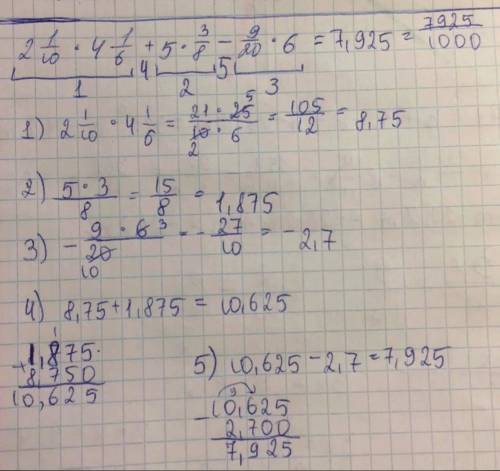 2 1/10 · 4 1/6 + 5 · 3/8 - 9/20 · 6 = 7,925 = 7925/1000
1 4 2 5 3
1) 2 1/10 · 4 1/6 = 21 · 25 5 / 10 2 · 6 = 105/12 = 8,75
2) 5 · 3 / 8 = 15/8 = 1,875
3) - 9 · 6 3 / 20 10 = - 27/10 = - 2,7
4) 8,75 + 1,875 = 10,625
1
1,875
+ 8,750
10,625
5) 10,625 - 2,7 = 7,925
9
- 10,625
2,700
7,925